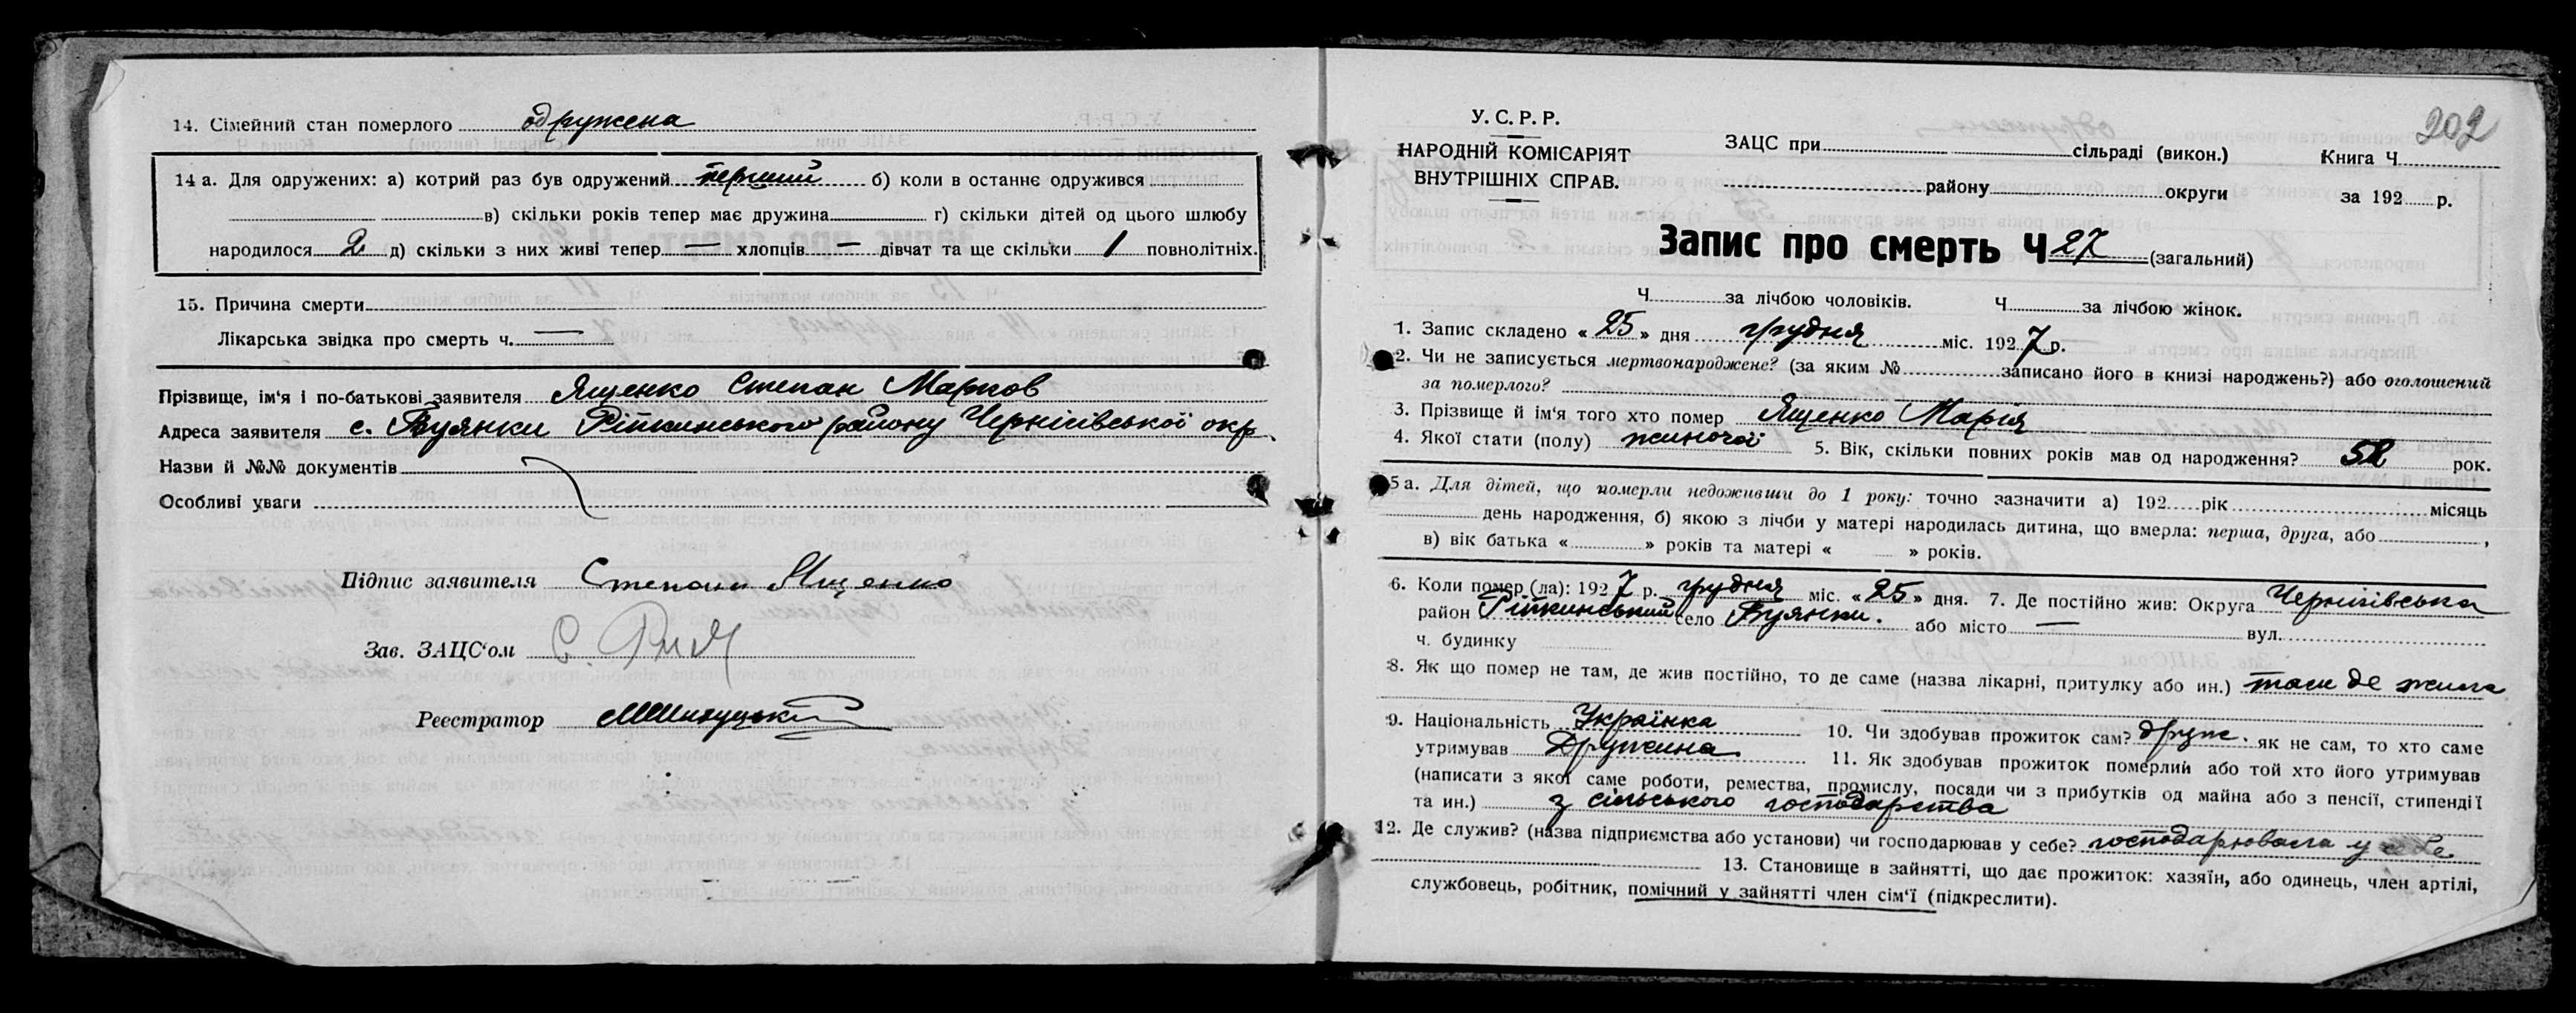 14. Сімейний стан померлого одружена
14 а. Для одружених: а) котрий раз був одружений перший б) коли в останнє одружився
в) скільки років тепер має дружина г) скільки дітей од цього шлюбу
народилося 2 д) скільки з них живі тепер — хлопців — дівчат та ще скільки 1 повнолітніх.
15. Причина смерти
Лікарська звідка про смерть ч. —
Прізвище, ім'я і по-батькові заявителя Ященко Степан Марков
Адреса заявителя с. Буянки Ріпкинського району Чернігівської окр.
Назви й №№ документів
Особливі уваги
Підпис заявителя Степан Ященко
Зав. ЗАЦС'ом
Реєстратор
202
У. С. Р. Р.
НАРОДНІЙ КОМІСАРІЯТ
ВНУТРІШНІХ СПРАВ.
ЗАЦС при сільраді (викон.) Книга Ч
району округи за 192 р.
Запис про смерть Ч 27 (загальний)
Ч за лічбою чоловіків. Ч за лічбою жінок.
1. Запис складено « 25 » дня грудня міс. 192 7 р.
2. Чи не записується мертвонароджене? (за яким № записано його в книзі народжень?) або оголошений
за померлого?
3. Прізвище й ім'я того хто помер Ященко Марія
4. Якої стати (полу) жиночої 5. Вік, скільки повних років мав од народження? 52 рок.
5 а. Для дітей, що померли недоживши до 1 року: точно зазначити а) 192 рік місяць
день народження, б) якою з лічби у матері народилась дитина, що вмерла: перша, друга, або ,
в) вік батька « » років та матері « » років.
6. Коли помер (ла): 192 7 р. грудня міс. « 25 » дня. 7. Де постійно жив: Округа Чернігівська
район Ріпкинський село Буянки. або місто — вул.
ч. будинку
8. Як що помер не там, де жив постійно, то де саме (назва лікарні, притулку або ин.) там де жила
9. Національність Українка 10. Чи здобував прожиток сам? друж. як не сам, то хто саме
утримував Дружина 11. Як здобував прожиток померлий або той хто його утримував
(написати з якої саме роботи, ремества, промислу, посади чи з прибутків од майна або з пенсії, стипендії
та ин.) з сільського господарства
12. Де служив? (назва підприємства або установи) чи господарював у себе? господарювала у себе
13. Становище в зайнятті, що дає прожиток: хазяїн, або одинець, член артілі,
службовець, робітник, помічний у зайнятті член сім'ї (підкреслити).